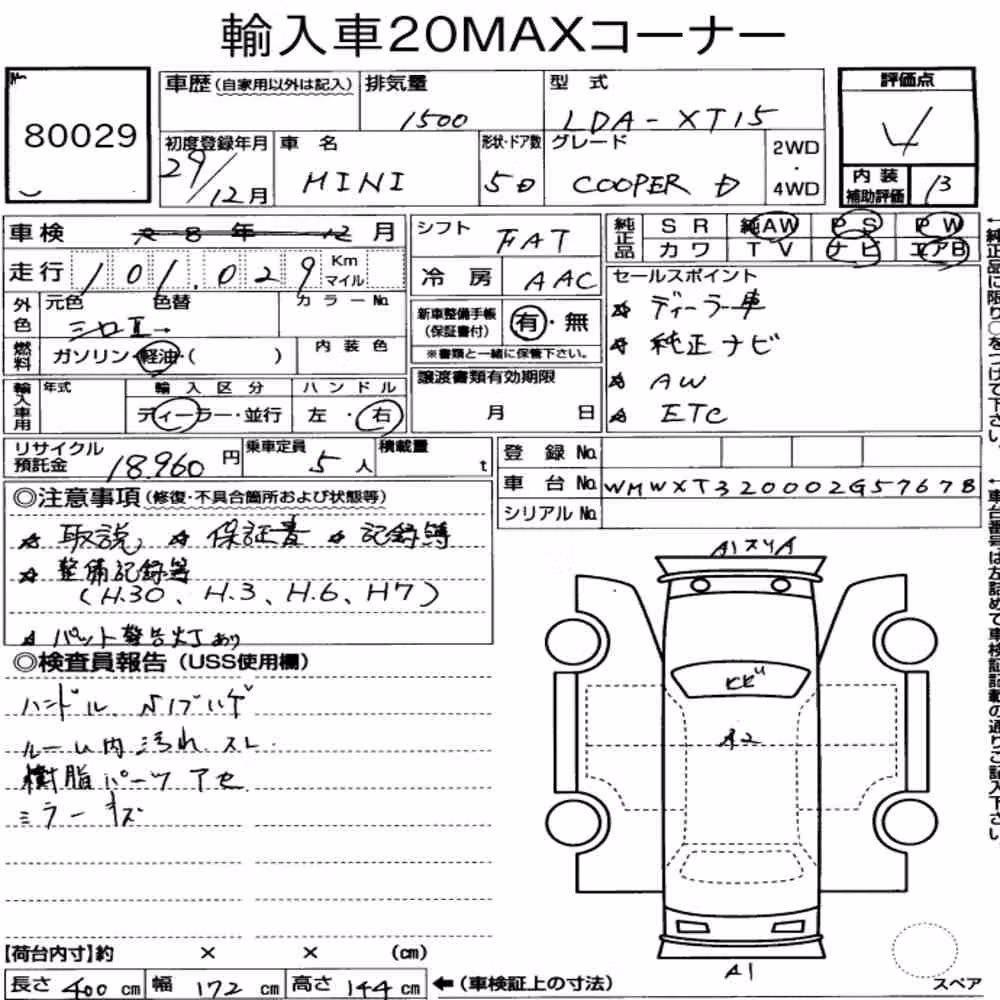 輸入車20MAXコーナー
No.
80029
車歴(自家用以外は記入) 排気量 1500 型式 LDA-XT15
評価点 4
初度登録年月 29/12月 車名 MINI 形状・ドア数 5D グレード COOPER D 2WD・4WD
内装補助評価 B
車検 R8年12月
シフト FAT
純正品 SR 純AW PS PW
カワ TV ナビ エアB
走行 101,029 Km マイル
冷房 AAC
セールスポイント
ディーラー車
純正ナビ
AW
ETC
外色 元色 シロⅡ 色替 カラーNo.
新車整備手帳(保証書付) 有・無
※書類と一緒に保管下さい。
燃料 ガソリン・軽油・( ) 内装色
輸入車用 年式 輸入区分 ディーラー・並行 ハンドル 左・右
譲渡書類有効期限 月 日
リサイクル預託金 18,960円 乗車定員 5人 積載量 t
登録No.
車台No. WMWXT320002G57678
シリアルNo.
◎注意事項(修復・不具合箇所および状態等)
取説 保証書 記録簿
整備記録簿
(H.30、H.3、H.6、H7)
パット警告灯あり
◎検査員報告(USS使用欄)
ハンドル
ルーム内汚れ スレ
樹脂パーツ アセ
ミラーキズ
A1スリA
ヒビ
A2
A1
スペア
【荷台内寸】約 × × (cm)
長さ 400 cm 幅 172 cm 高さ 144 cm ←(車検証上の寸法)
←純正品に限り○をつけて下さい。
←車台番号は左詰めで車検証記載の通りご記入下さい。